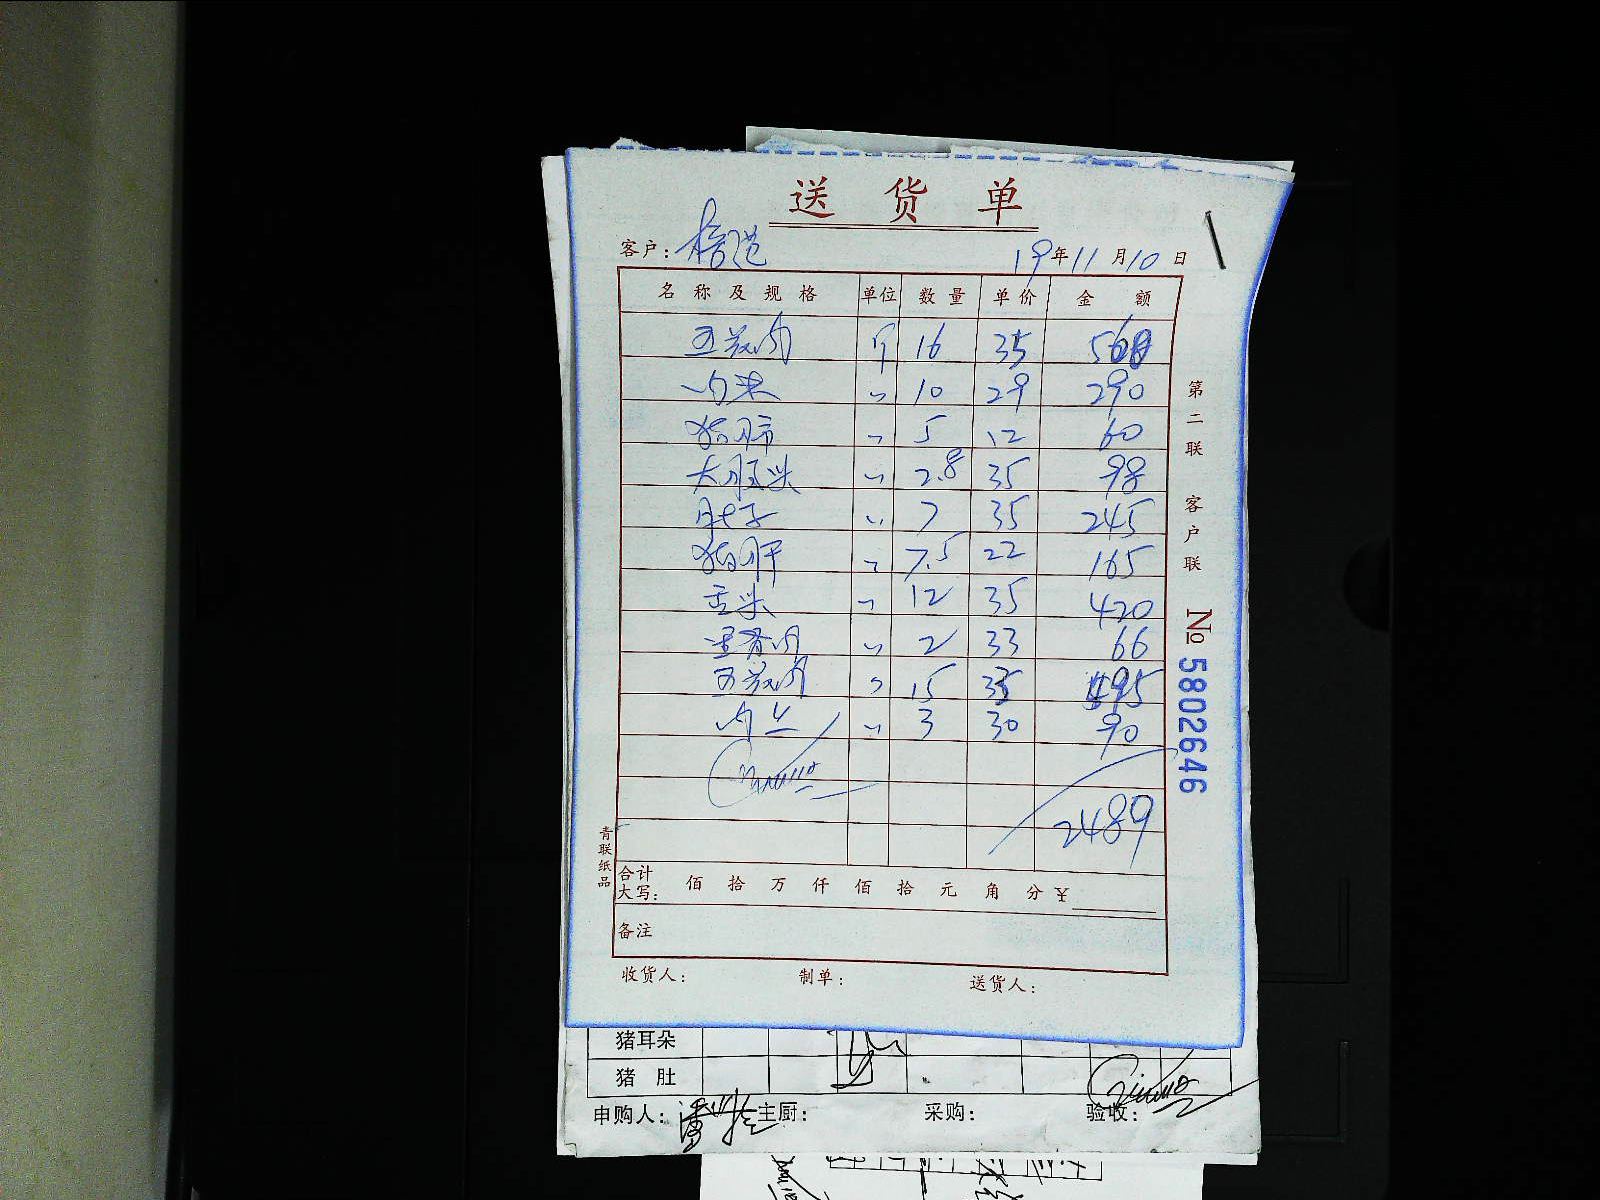 送货单
客户: 榕港 19年11月10日
名称及规格 单位 数量 单价 金额
五花肉 斤 16 35 560
肉末 〃 10 29 290
猪肺 〃 5 12 60
大肠头 〃 2.8 35 98
肚子 〃 7 35 245
猪肝 〃 7.5 22 165
舌头 〃 12 35 420
里脊肉 〃 2 33 66
五花肉 〃 15 33 495
肉丝 〃 3 30 90
2489
合计大写: 佰 拾 万 仟 佰 拾 元 角 分 ¥
备注
收货人: 制单: 送货人:
第二联 客户联
No 5802646
青联纸品
猪耳朵
猪肚
申购人: 主厨: 采购: 验收: